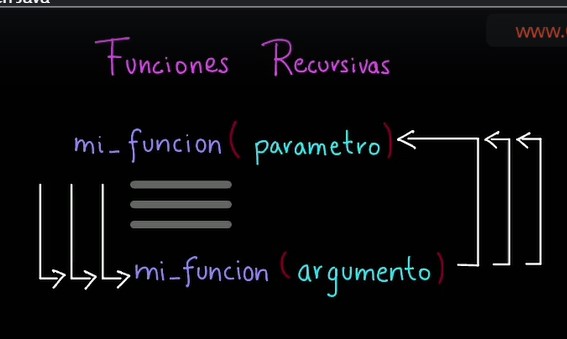 Funciones Recursivas
mi_funcion( parametro)
mi_funcion (argumento)